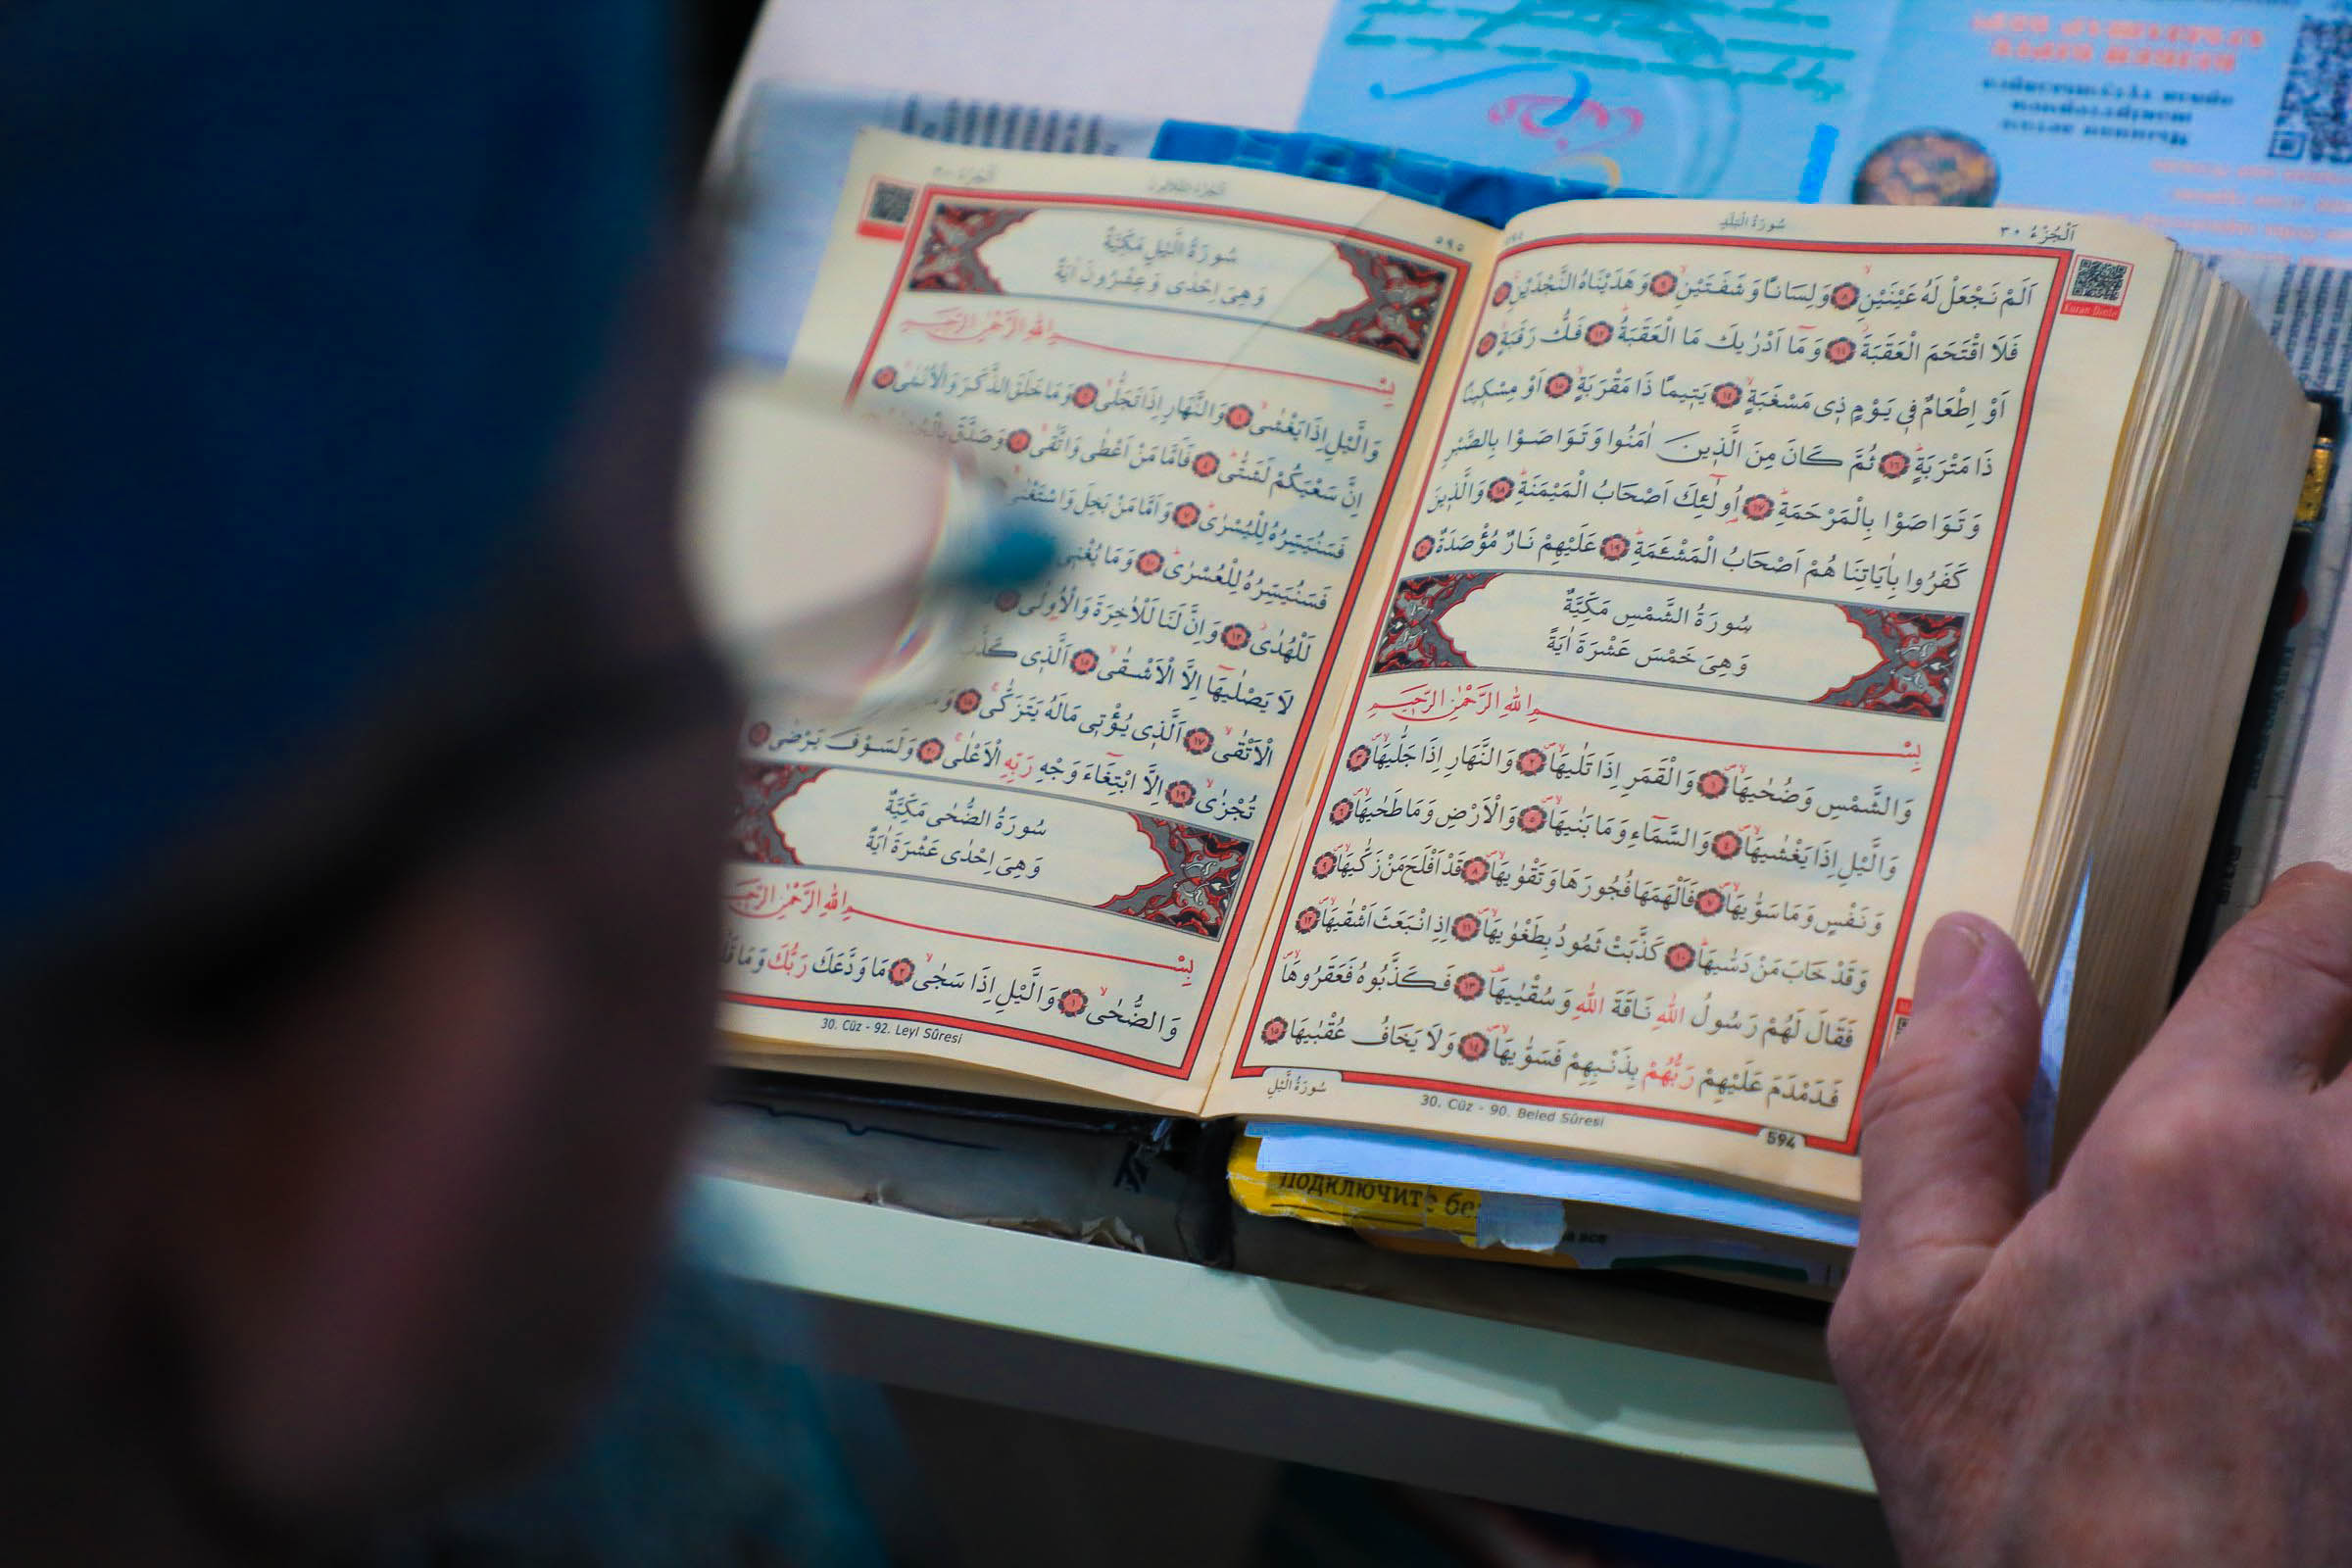 اَلْجُزْءُ ٣٠
سُورَةُ الْبَلَدِ
Kuran Dinle
اَلَمْ نَجْعَلْ لَهُ عَيْنَيْنِۙ ٨ وَلِسَانًا وَشَفَتَيْنِۙ ٩ وَهَدَيْنَاهُ النَّجْدَيْنِۚ
فَلَا اقْتَحَمَ الْعَقَبَةَۘ ١١ وَمَٓا اَدْرٰيكَ مَا الْعَقَبَةُۜ ١٢ فَكُّ رَقَبَةٍۙ
اَوْ اِطْعَامٌ ف۪ي يَوْمٍ ذ۪ي مَسْغَبَةٍۙ ١٤ يَت۪يمًا ذَا مَقْرَبَةٍۙ ١٥ اَوْ مِسْك۪ينًا
ذَا مَتْرَبَةٍۜ ١٦ ثُمَّ كَانَ مِنَ الَّذ۪ينَ اٰمَنُوا وَتَوَاصَوْا بِالصَّبْرِ
وَتَوَاصَوْا بِالْمَرْحَمَةِۜ ١٧ اُو۬لٰٓئِكَ اَصْحَابُ الْمَيْمَنَةِۜ ١٨ وَالَّذ۪ينَ
كَفَرُوا بِاٰيَاتِنَا هُمْ اَصْحَابُ الْمَشْـَٔمَةِۜ ١٩ عَلَيْهِمْ نَارٌ مُؤْصَدَةٌ ٢٠
سُورَةُ الشَّمْسِ مَكِّيَّةٌ
وَهِيَ خَمْسَ عَشْرَةَ اٰيَةً
بِسْمِ اللهِ الرَّحْمٰنِ الرَّح۪يمِ
وَالشَّمْسِ وَضُحٰيهَاۙ ١ وَالْقَمَرِ اِذَا تَلٰيهَاۙ ٢ وَالنَّهَارِ اِذَا جَلّٰيهَاۙ ٣
وَالَّيْلِ اِذَا يَغْشٰيهَاۙ ٤ وَالسَّمَٓاءِ وَمَا بَنٰيهَاۙ ٥ وَالْاَرْضِ وَمَا طَحٰيهَاۙ ٦
وَنَفْسٍ وَمَا سَوّٰيهَاۙ ٧ فَاَلْهَمَهَا فُجُورَهَا وَتَقْوٰيهَاۙ ٨ قَدْ اَفْلَحَ مَنْ زَكّٰيهَاۙ ٩
وَقَدْ خَابَ مَنْ دَسّٰيهَاۜ ١٠ كَذَّبَتْ ثَمُودُ بِطَغْوٰيهَاۙ ١١ اِذِ انْبَعَثَ اَشْقٰيهَاۙ ١٢
فَقَالَ لَهُمْ رَسُولُ اللهِ نَاقَةَ اللهِ وَسُقْيٰيهَاۜ ١٣ فَكَذَّبُوهُ فَعَقَرُوهَاۙ
فَدَمْدَمَ عَلَيْهِمْ رَبُّهُمْ بِذَنْبِهِمْ فَسَوّٰيهَاۙ ١٤ وَلَا يَخَافُ عُقْبٰيهَا ١٥
سُورَةُ الَّيْلِ
30. Cüz - 90. Beled Sûresi
594
٥٩٥
سُورَةُ الَّيْلِ مَكِّيَّةٌ
وَهِيَ اِحْدٰى وَعِشْرُونَ اٰيَةً
بِسْمِ اللهِ الرَّحْمٰنِ الرَّح۪يمِ
وَالَّيْلِ اِذَا يَغْشٰىۙ ١ وَالنَّهَارِ اِذَا تَجَلّٰىۙ ٢ وَمَا خَلَقَ الذَّكَرَ وَالْاُنْثٰىۙ
اِنَّ سَعْيَكُمْ لَشَتّٰىۜ ٤ فَاَمَّا مَنْ اَعْطٰى وَاتَّقٰىۙ ٥ وَصَدَّقَ
فَسَنُيَسِّرُهُ لِلْيُسْرٰىۜ ٧ وَاَمَّا مَنْ بَخِلَ وَاسْتَغْنٰىۙ
فَسَنُيَسِّرُهُ لِلْعُسْرٰىۜ ١٠ وَمَا يُغْن۪ي
لَلْهُدٰىۘ ١٢ وَاِنَّ لَنَا لَلْاٰخِرَةَ وَالْاُو۫لٰى
لَا يَصْلٰيهَٓا اِلَّا الْاَشْقٰىۙ ١٥ اَلَّذ۪ي كَذَّبَ
الْاَتْقٰىۙ ١٧ اَلَّذ۪ي يُؤْت۪ي مَالَهُ يَتَزَكّٰىۚ ١٨
تُجْزٰىۙ ١٩ اِلَّا ابْتِغَٓاءَ وَجْهِ رَبِّهِ الْاَعْلٰىۚ ٢٠ وَلَسَوْفَ يَرْضٰى
سُورَةُ الضُّحٰى مَكِّيَّةٌ
وَهِيَ اِحْدٰى عَشْرَةَ اٰيَةً
بِسْمِ اللهِ الرَّحْمٰنِ الرَّح۪يمِ
وَالضُّحٰىۙ ١ وَالَّيْلِ اِذَا سَجٰىۙ ٢ مَا وَدَّعَكَ رَبُّكَ وَمَا
30. Cüz - 92. Leyl Sûresi
Подключите